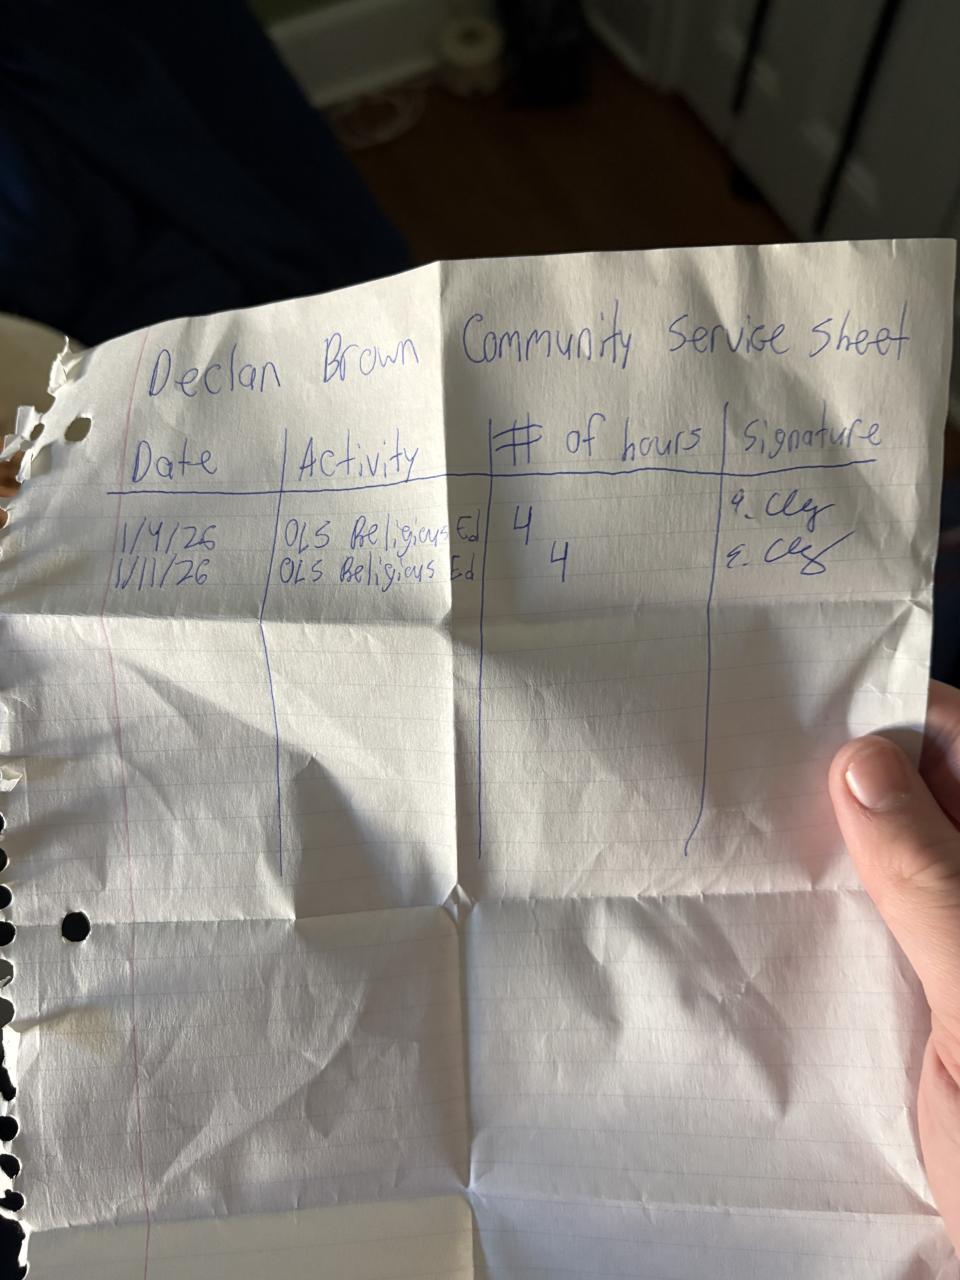 Declan Brown Community Service Sheet
Date Activity # of hours Signature
1/4/26 OLS Religious Ed 4
1/11/26 OLS Religious Ed 4